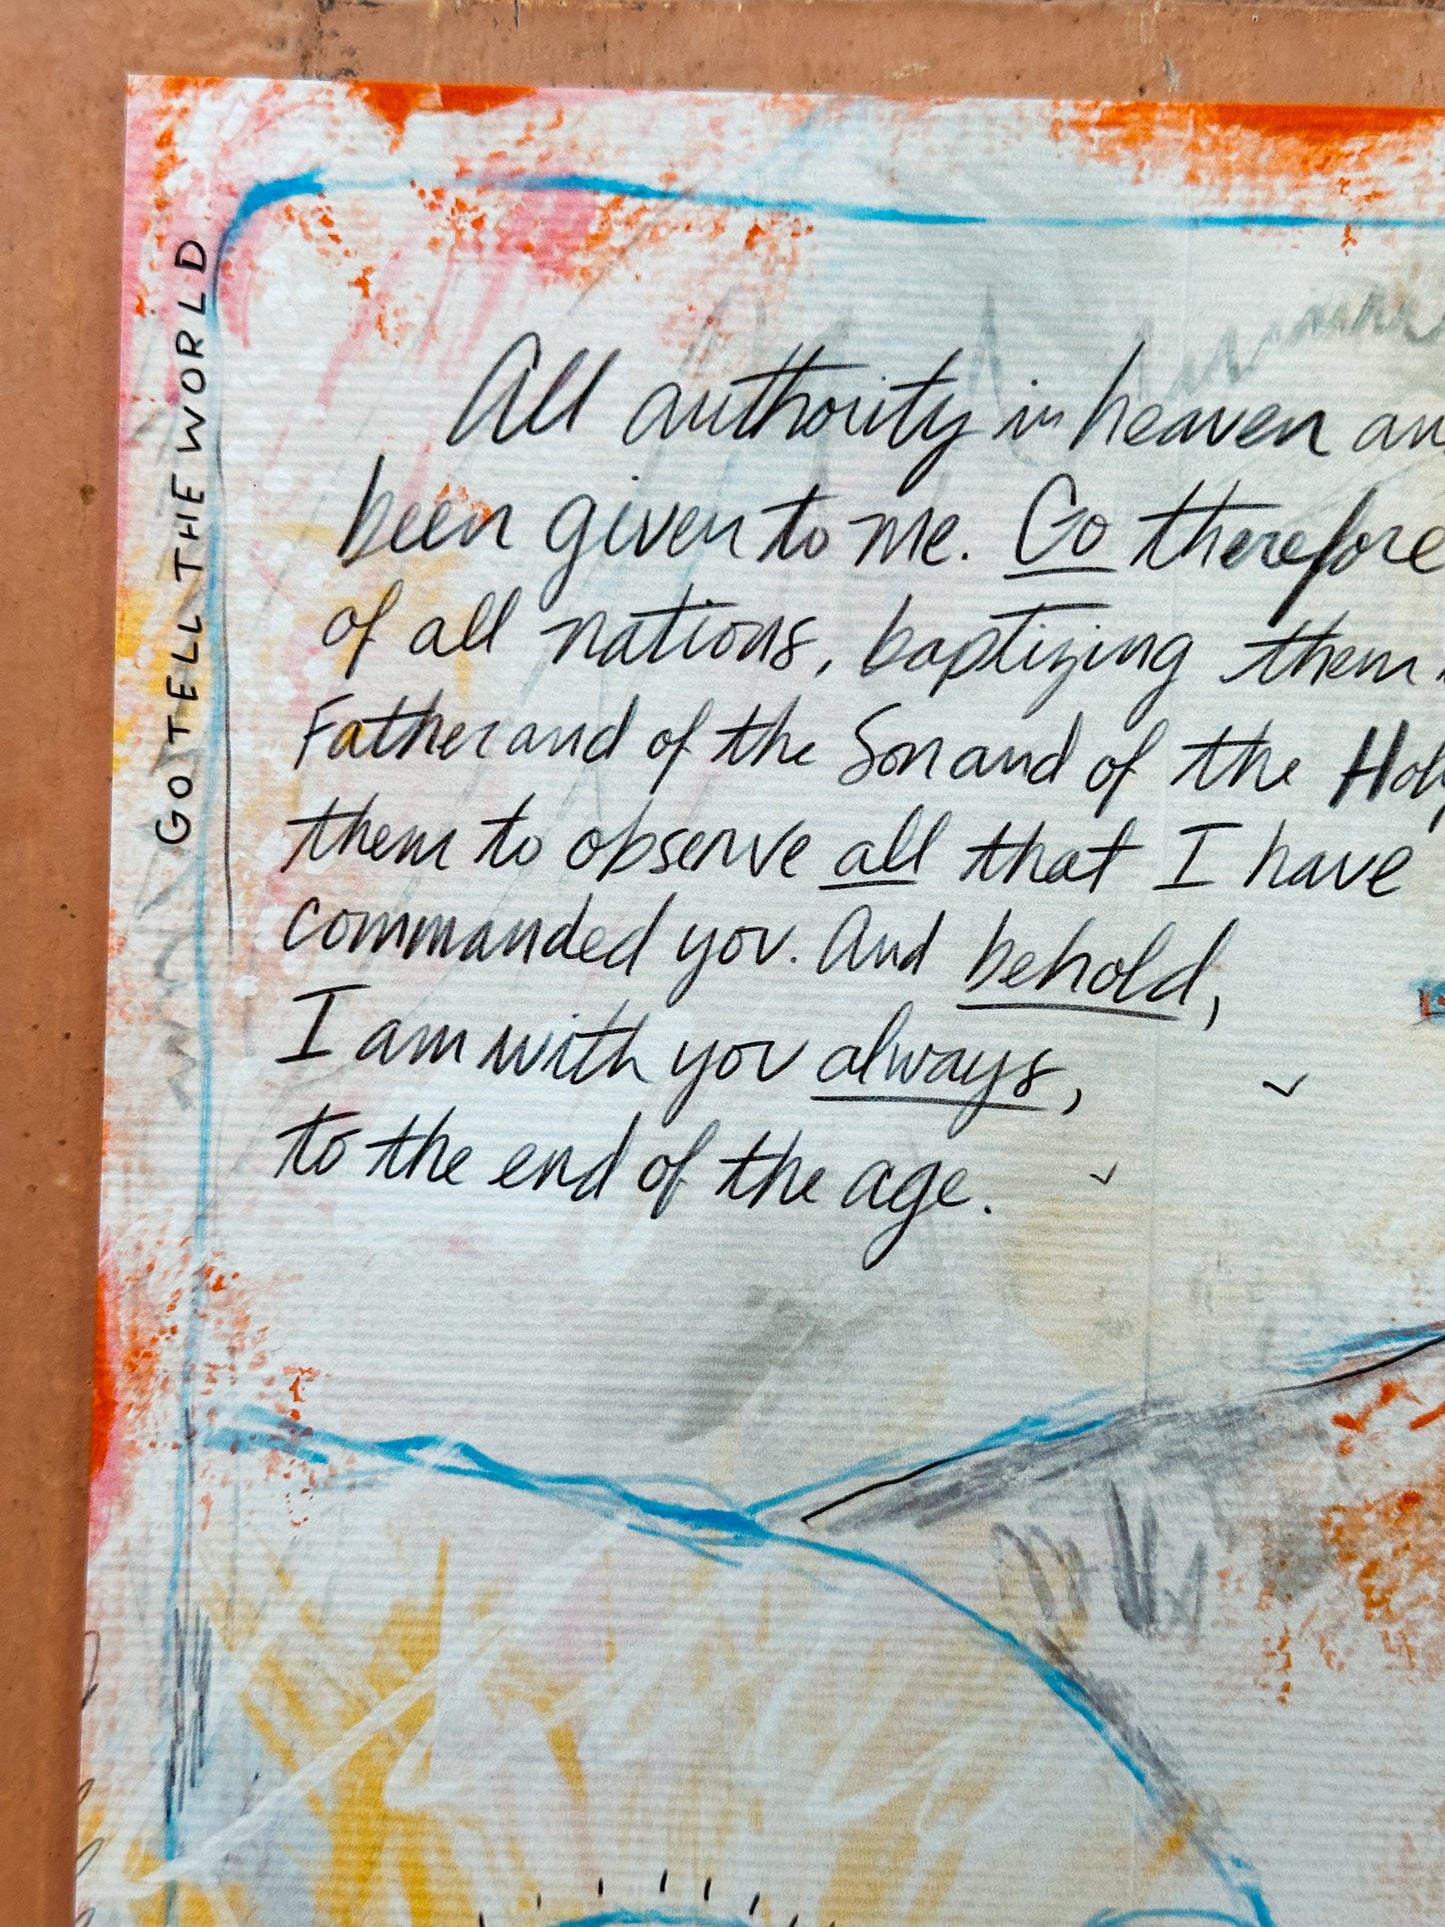 GO TELL THE WORLD
All authority in heaven
been given to me. Go therefore
of all nations, baptizing them
Father and of the Son and of the
them to observe all that I have
commanded you. And behold,
I am with you always,
to the end of the age.